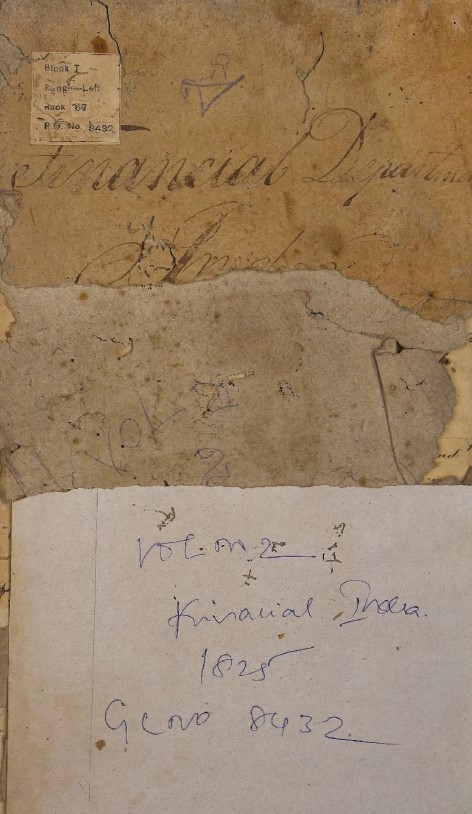 Block I
Range—Left
Rack 67
P.O. No. 8432
Financial Departme
VOL 2
2
VOL NO 2
Finacial India.
1825
G 8432